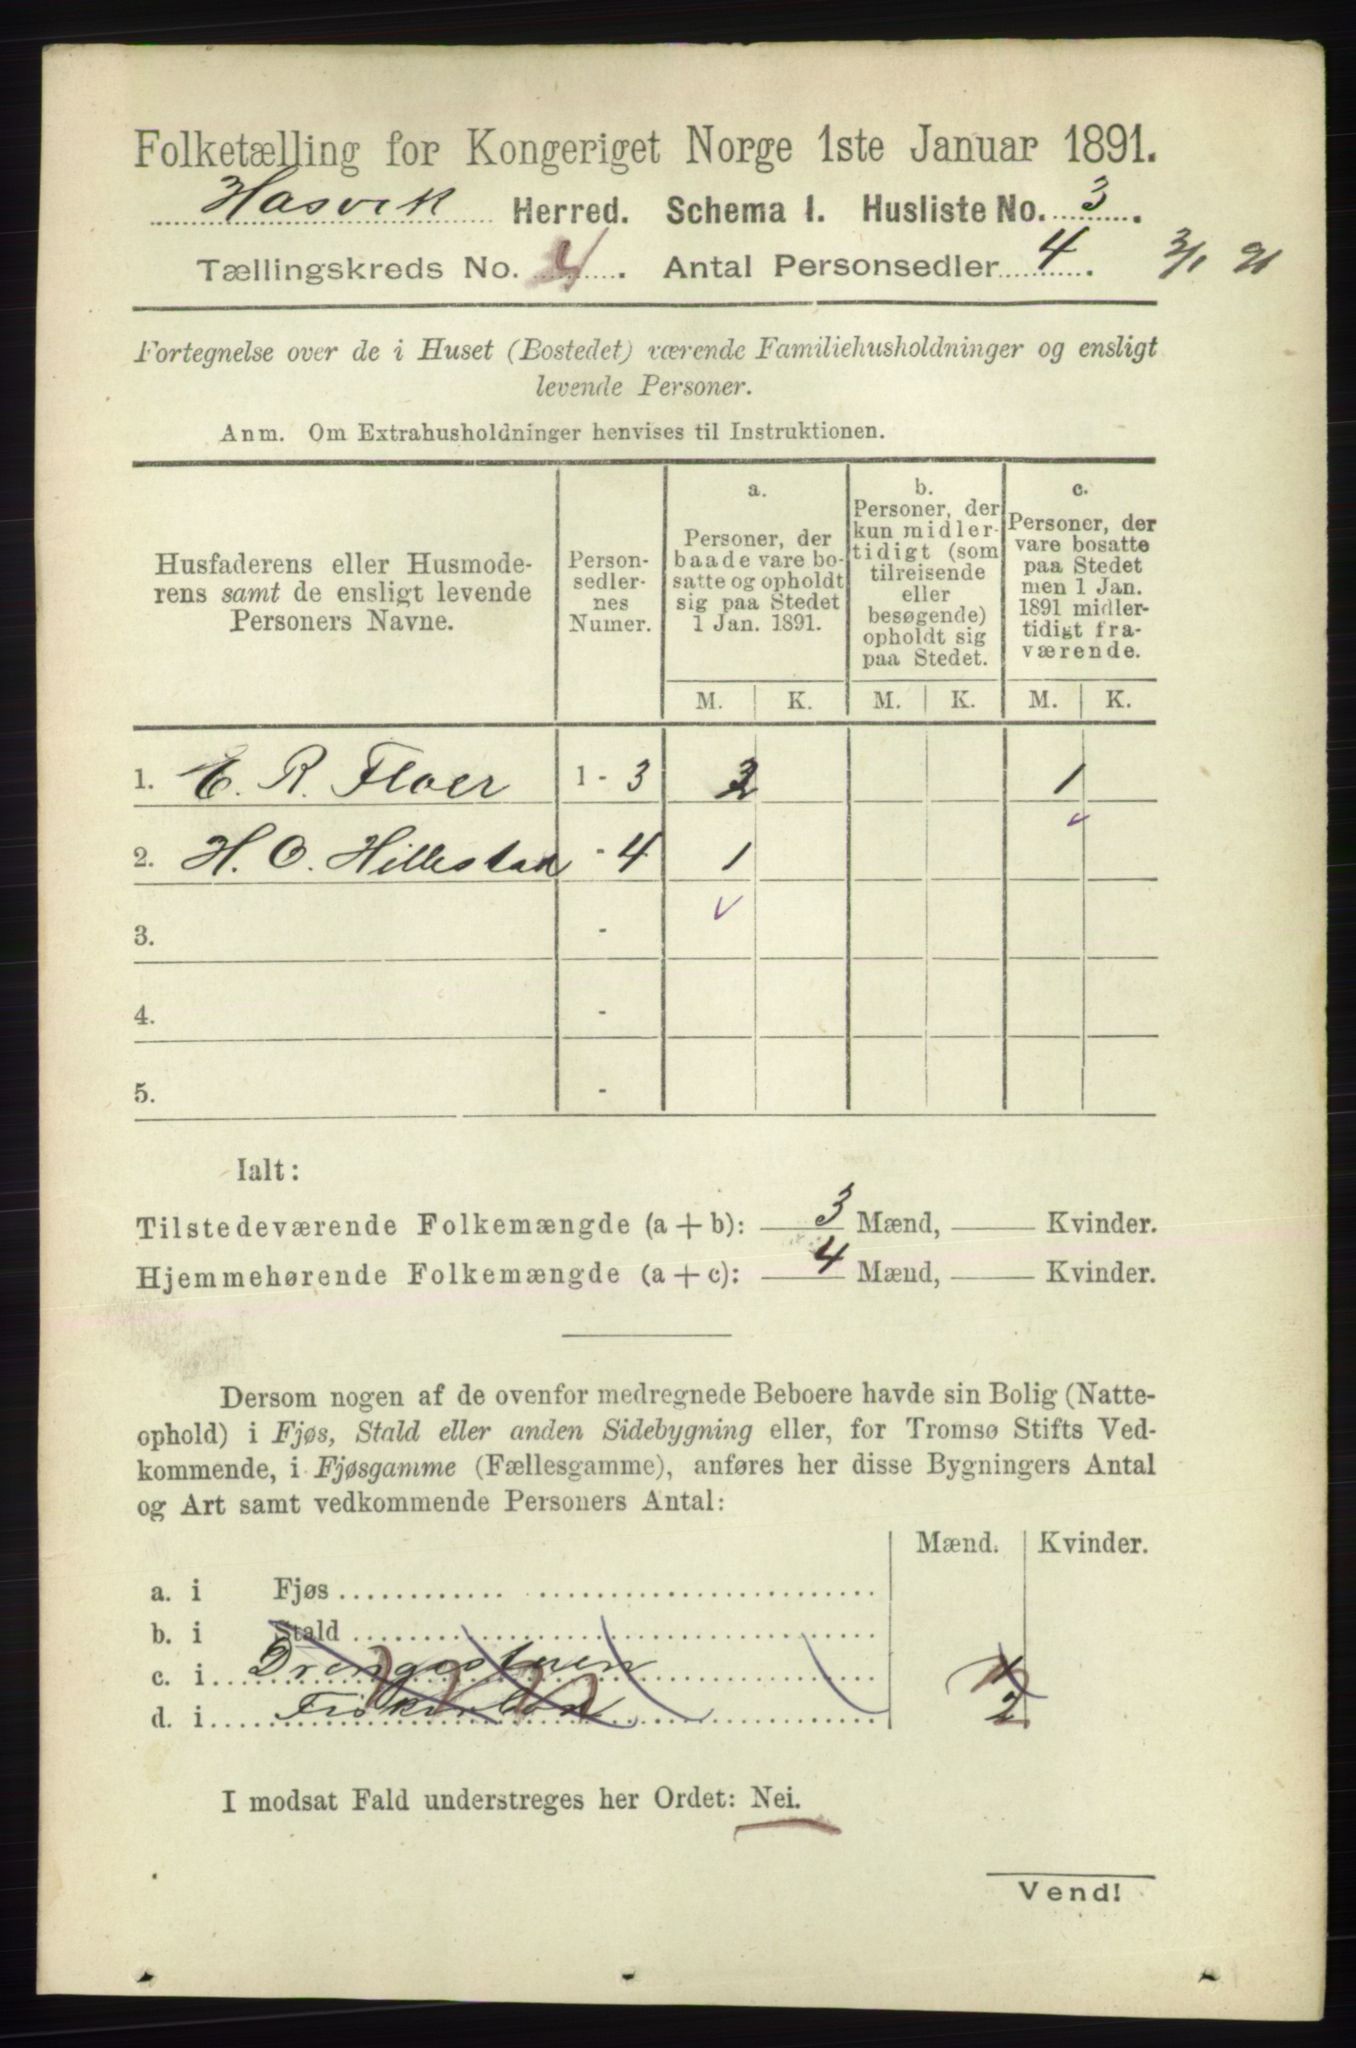 Folketælling for Kongeriget Norge 1ste Januar 1891.
Hasvik Herred. Schema 1. Husliste No. 3.
Tællingskreds No. 4. Antal Personsedler 4. 3/1 91
Fortegnelse over de i Huset (Bostedet) værende Familiehusholdninger og ensligt
levende Personer.
Anm. Om Extrahusholdninger henvises til Instruktionen.
Husfaderens eller Husmode-
rens samt de ensligt levende
Personers Navne.
Person-
sedler-
nes
Numer.
a.
Personer, der
baade vare bo-
satte og opholdt
sig paa Stedet
1 Jan. 1891.
b.
Personer, der
kun midler-
tidigt (som
tilreisende
eller
besøgende)
opholdt sig
paa Stedet.
c.
Personer, der
vare bosatte
paa Stedet
men 1 Jan.
1891 midler-
tidigt fra-
værende.
M. K. M. K. M. K.
1. E. R. Floer 1 - 3 2 1
2. H. O. Hillestad - 4 1
3. -
4. -
5. -
Ialt:
Tilstedeværende Folkemængde (a + b): 3 Mænd, Kvinder.
Hjemmehørende Folkemængde (a + c): 4 Mænd, Kvinder.
Dersom nogen af de ovenfor medregnede Beboere havde sin Bolig (Natte-
ophold) i Fjøs, Stald eller anden Sidebygning eller, for Tromsø Stifts Ved-
kommende, i Fjøsgamme (Fællesgamme), anføres her disse Bygningers Antal
og Art samt vedkommende Personers Antal:
Mænd. Kvinder.
a. i Fjøs
b. i Stald
c. i Drengestuen
d. i 2
I modsat Fald understreges her Ordet: Nei.
Vend!